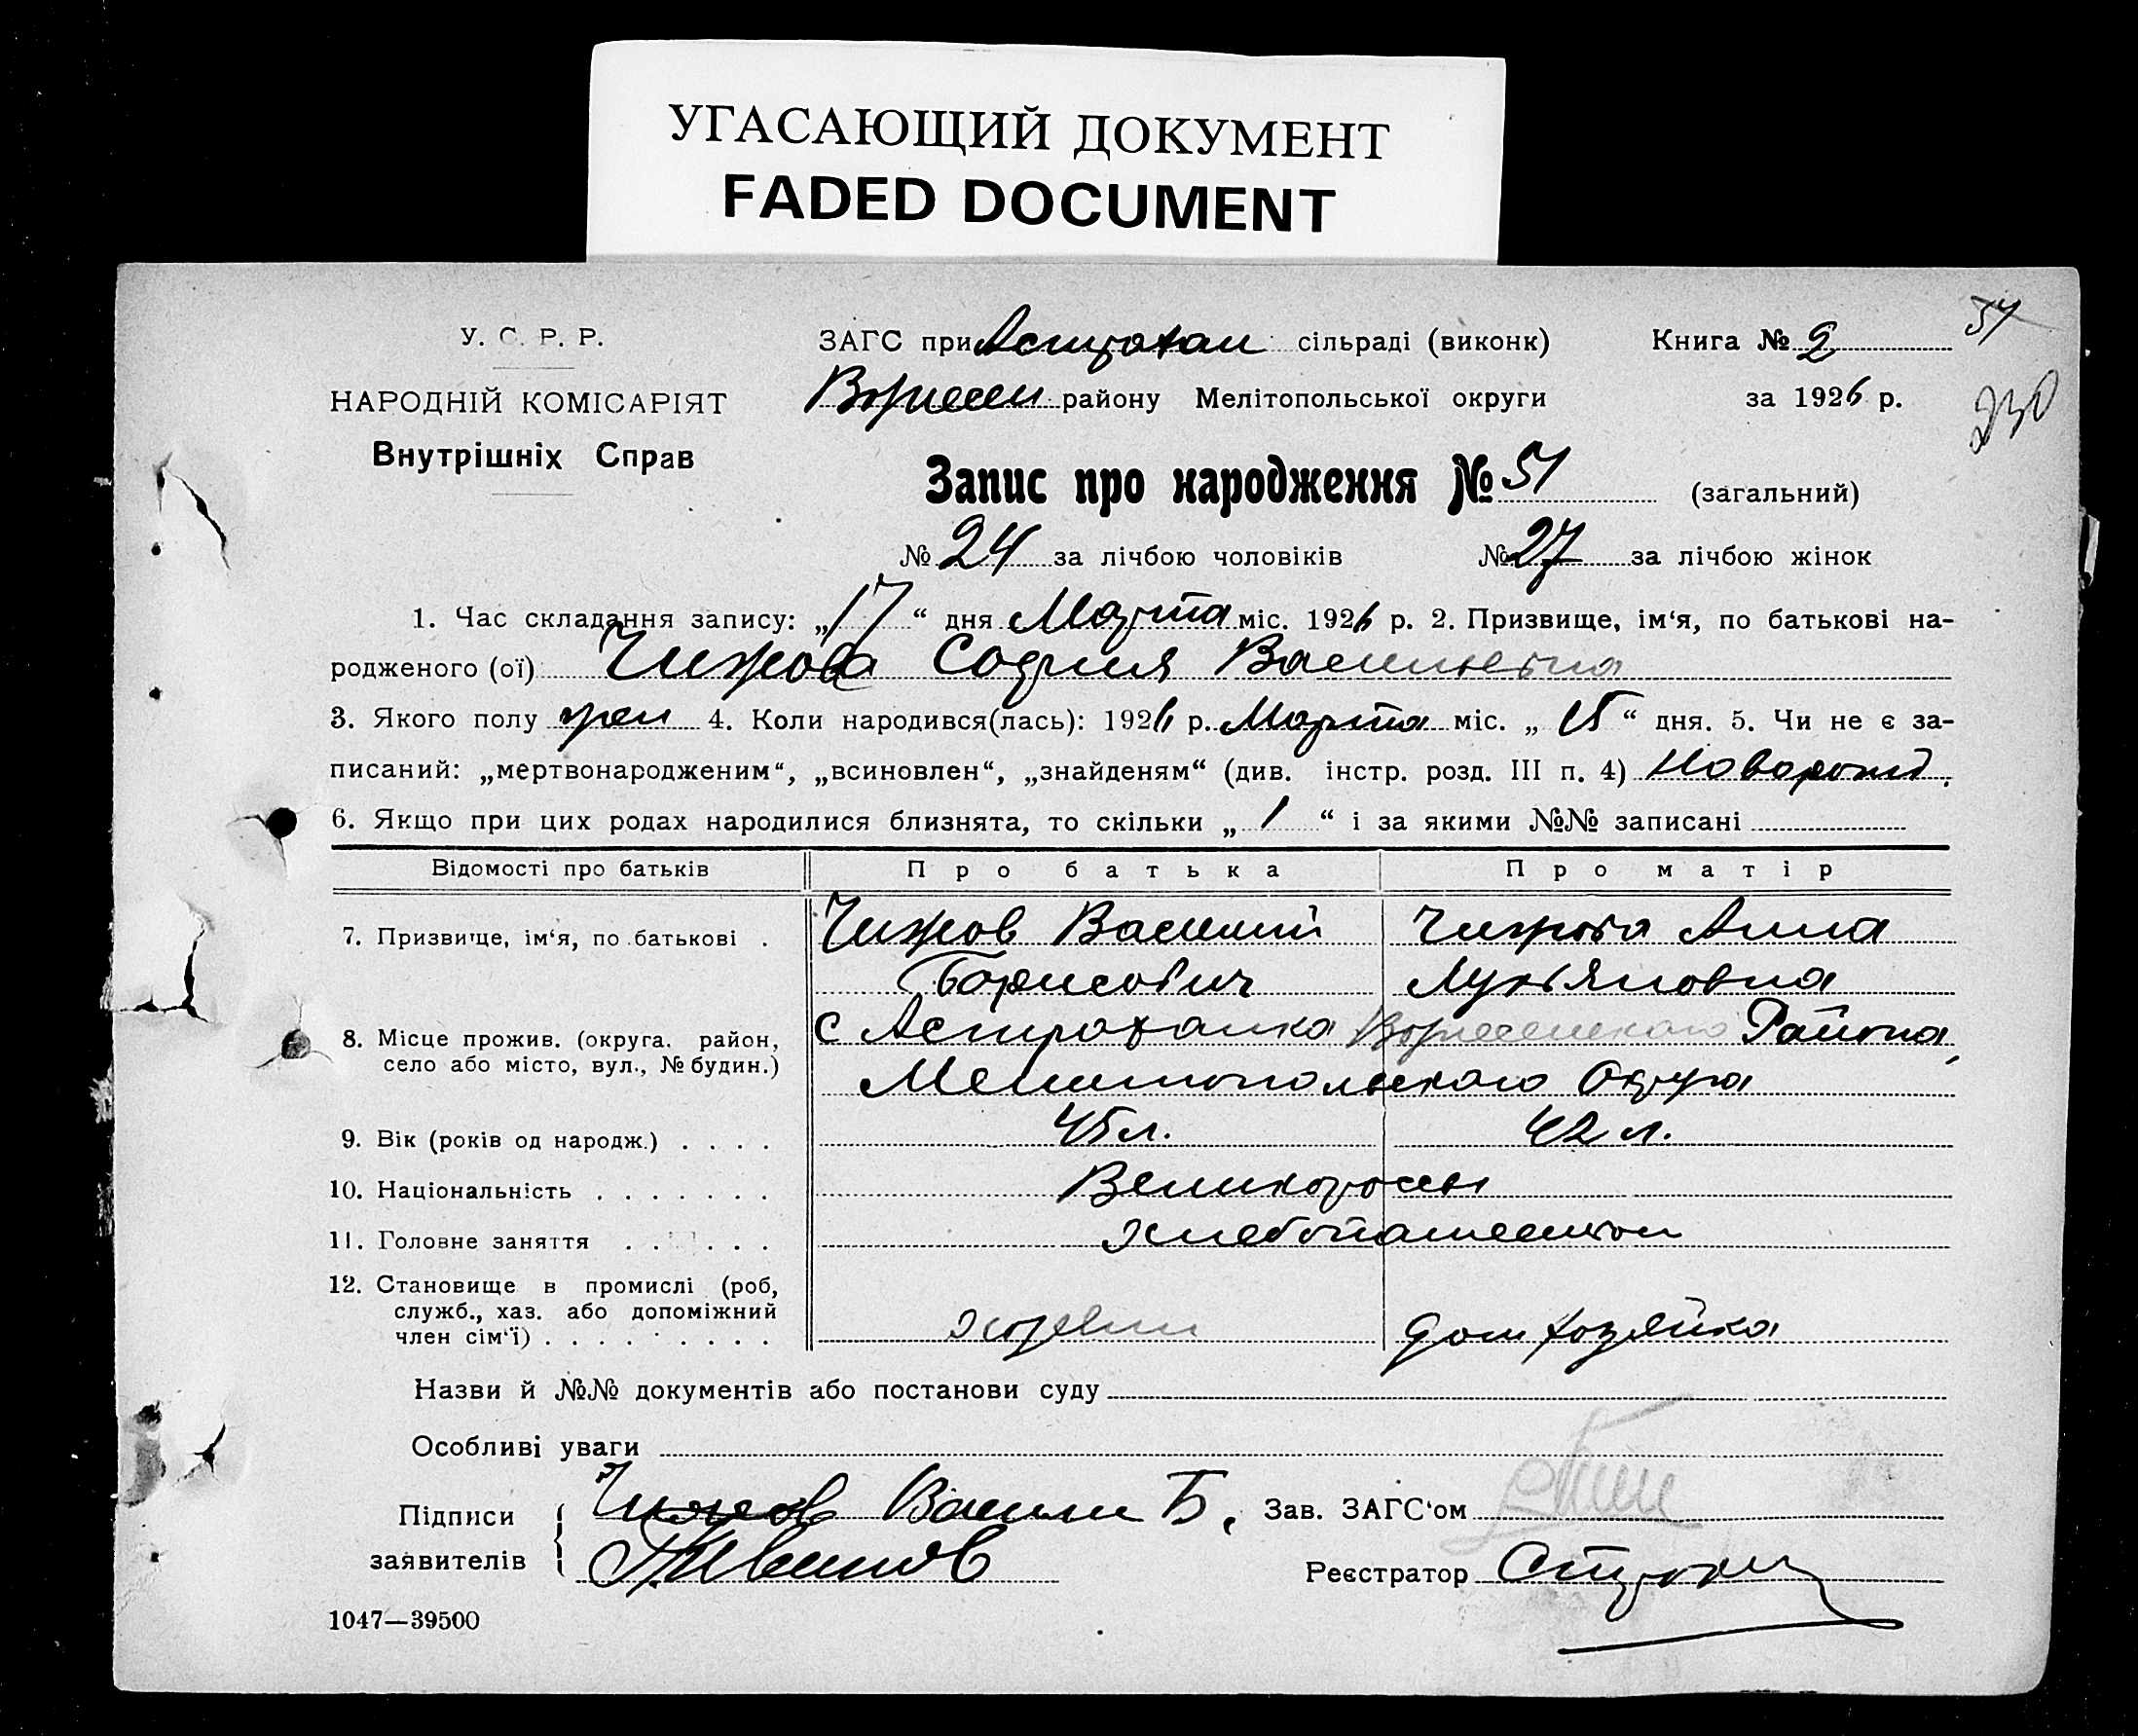 УГАСАЮЩИЙ ДОКУМЕНТ
FADED DOCUMENT
У. С. Р. Р.
НАРОДНІЙ КОМІСАРІЯТ
Внутрішніх Справ
ЗАГС при Астрахан сільраді (виконк)
району Мелітопольської округи
Книга № 2
за 1926 р.
51
230
Запис про народження № 51 (загальний)
№ 24 за лічбою чоловіків № 27 за лічбою жінок
1. Час складання запису: „17“ дня Марта міс. 1926 р. 2. Призвище, ім‘я, по батькові на-
родженого (ої) Чижова София Васильевна
3. Якого полу жен 4. Коли народився(лась): 1926 р. Марта міс. „15“ дня. 5. Чи не є за-
писаний: „мертвонародженим“, „всиновлен“, „знайденям“ (див. інстр. розд. III п. 4)Новорожд.
6. Якщо при цих родах народилися близнята, то скільки „1“ і за якими №№ записані
Відомості про батьків Про батька Про матір
7. Призвище, ім‘я, по батькові . Чижов Василий Чижова Анна
Борисович Лукьяновна
8. Місце прожив. (округа, район, село або місто, вул., № будин.) с Астраханка Района,
Мелитопольского Округа
9. Вік (років од народж.) . . . . 45 л. 42 л.
10. Національність . . . . . . . Великороссы
11. Головне заняття . . . . . .
12. Становище в промислі (роб,
служб., хаз. або допоміжний
член сім‘ї) . . . . . . . . . хозяин дом хозяйка
Назви й №№ документів або постанови суду
Особливі уваги
Підписи
заявителів
Чижов Васили Б.
Иванов
Зав. ЗАГС‘ом
Реєстратор
1047—39500